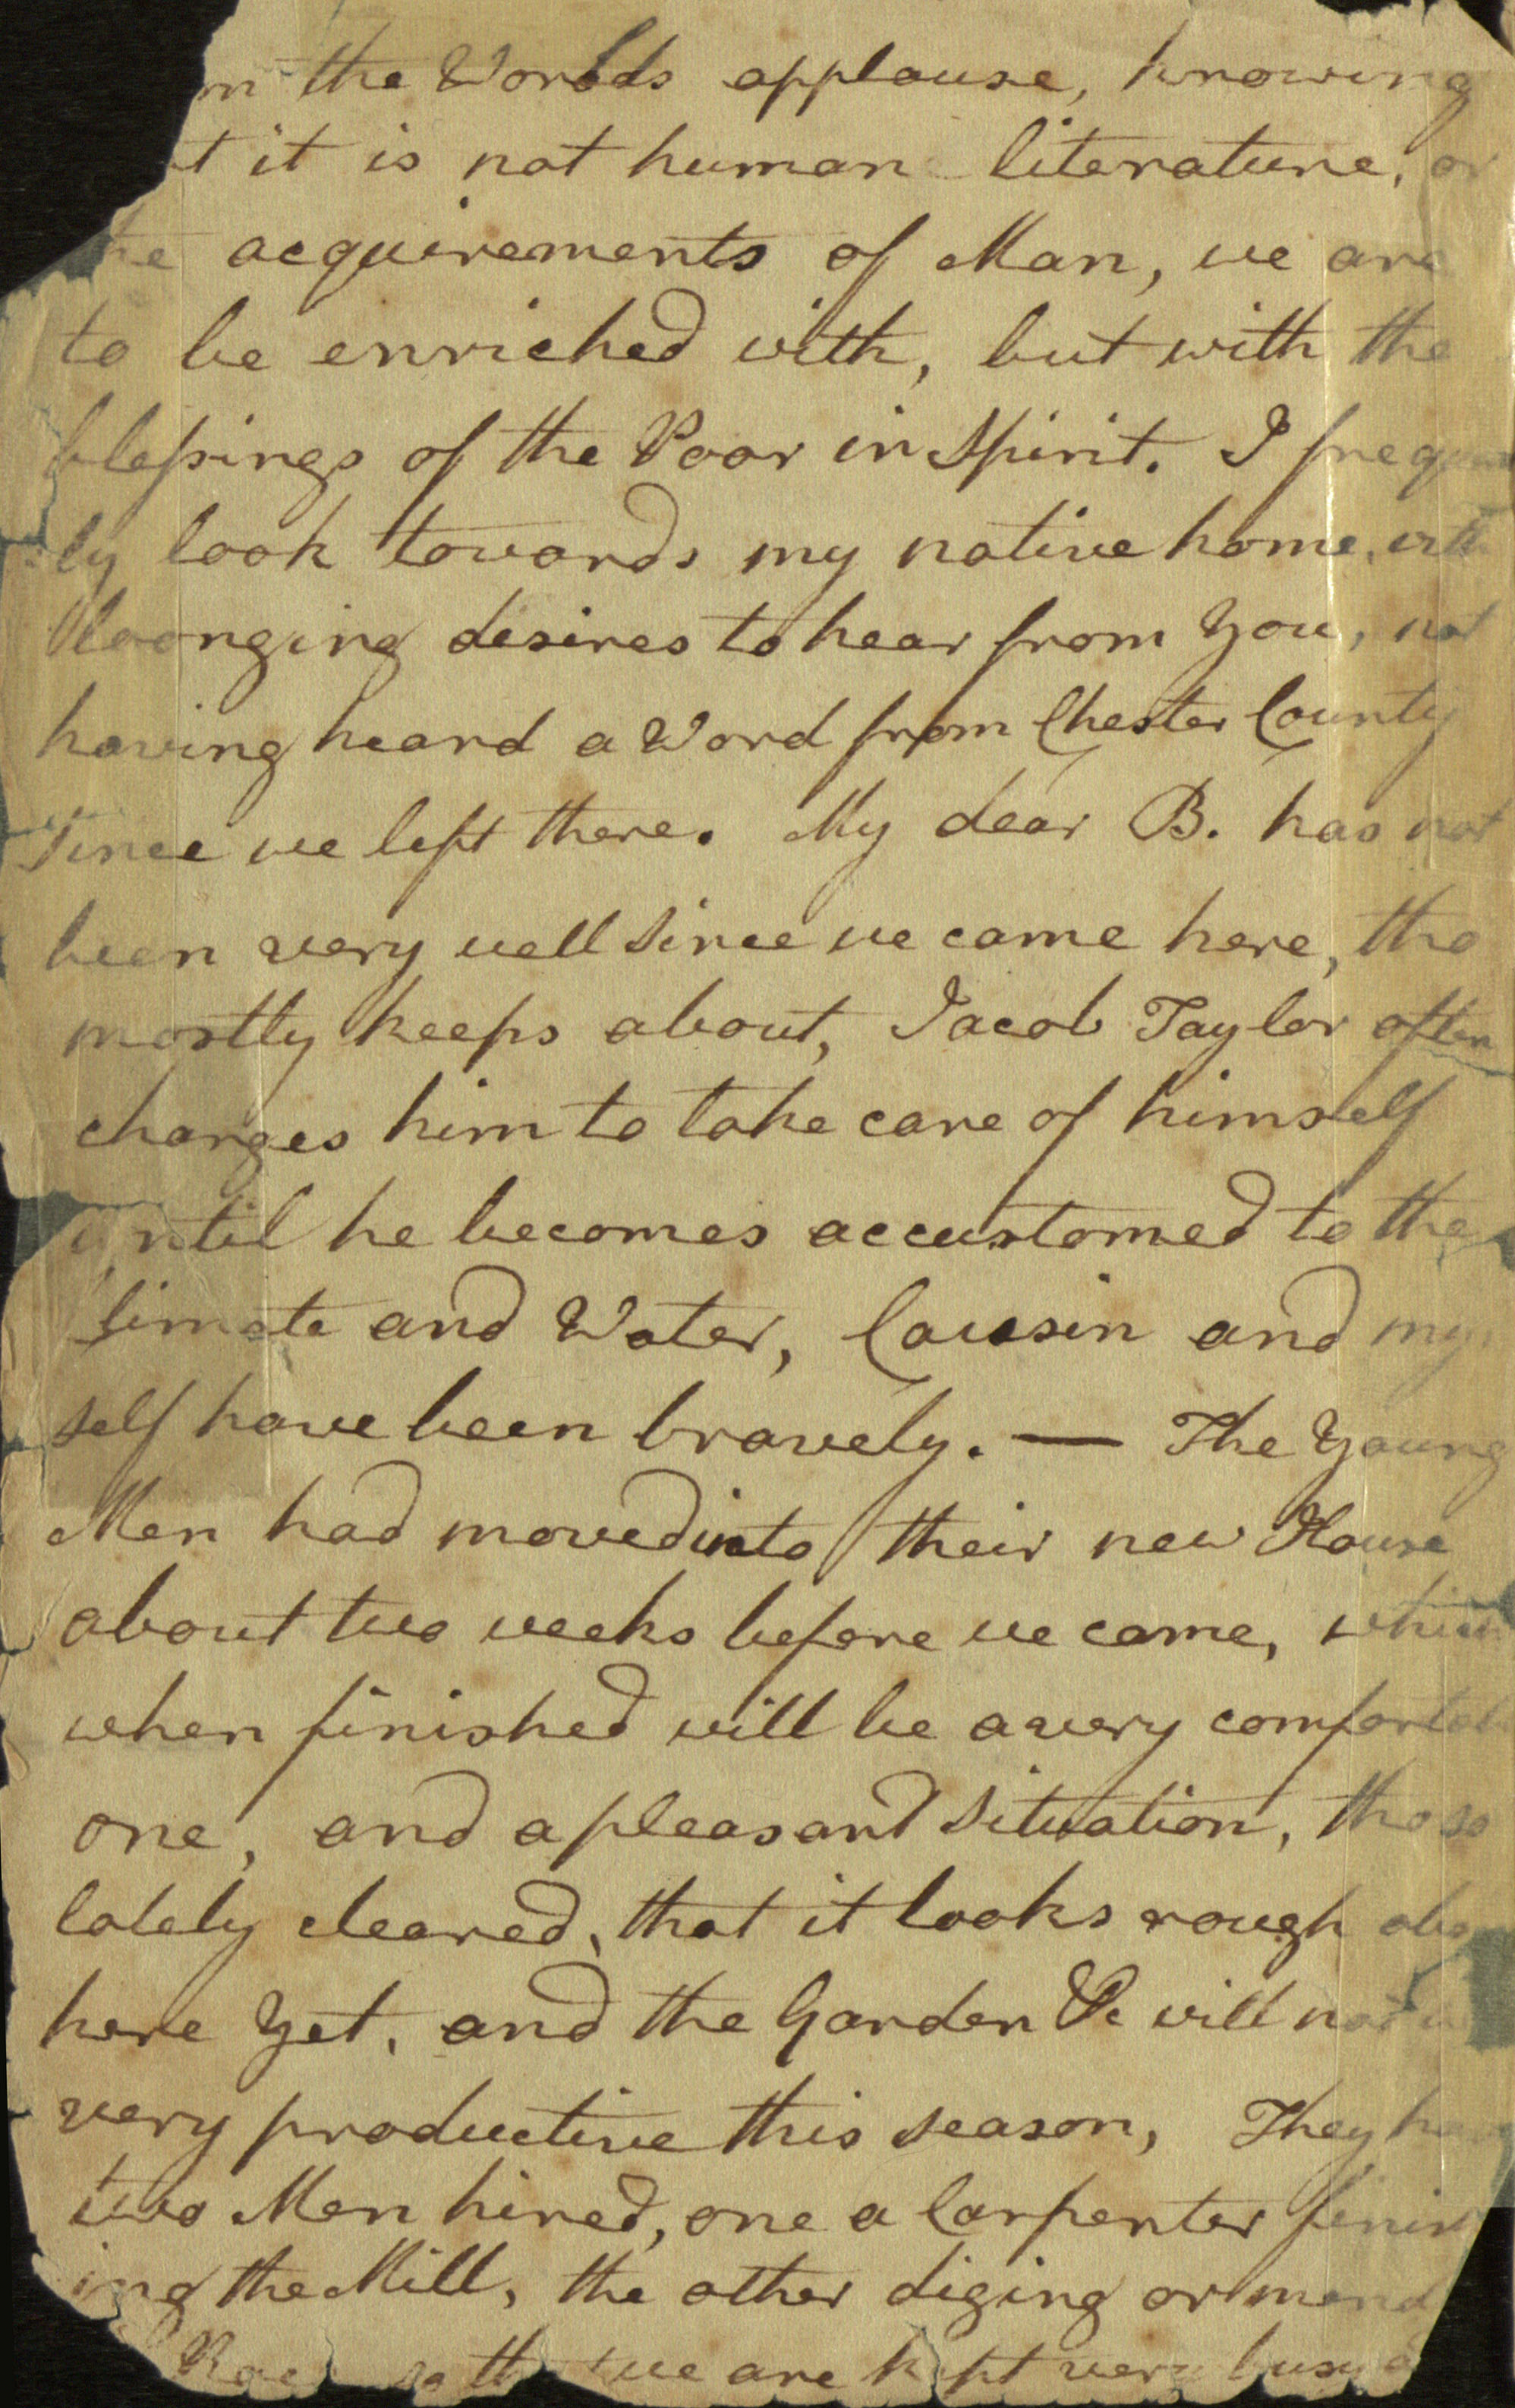 the Worlds applause, knowing
it is not human literature, or
acquirements of Man, we are
to be enriched with, but with the
blessings of the Poor in Spirit. I frequent
ly look towards my native home, with
loonging desires to hear from You, not
having heard a Word from Chester County
Since we left there. My dear B. has not
been very well Since we came here, tho
mostly keeps about, Jacob Taylor often
charges him to take care of himself
until he becomes accustomed to the
limate and Water, Cousin and my
self have been bravely. — The Young
Men had moved into their new House
about two weeks before we came, which
when finished will be a very comfortab
one, and a pleasant Situation, tho so
lately cleared, that it looks rough
here Yet, and the Garden &c will not
very productive this season, They have
two Men hired, one a Carpenter finish
ing the Mill, the other diging or mend
Race so we are kept very busy